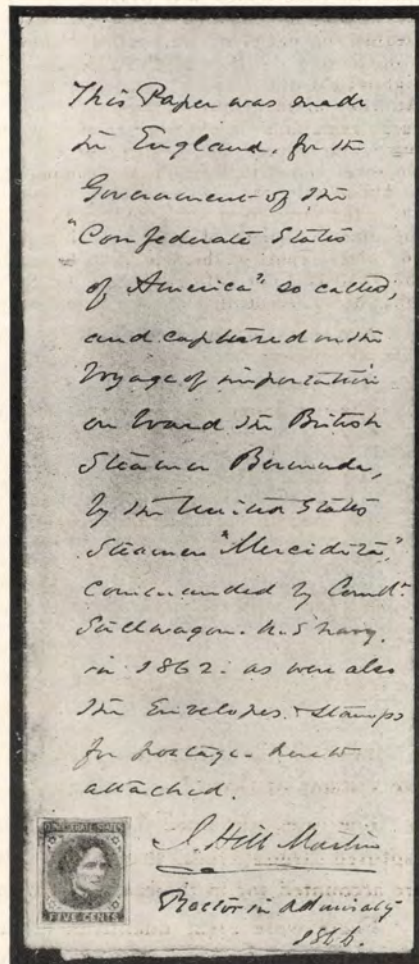 This Paper was made
in England, for the
Government of the
"Confederate States
of America" so called,
and captured on the
Voyage of importation
on board the British
Steamer Bermuda,
by the United States
Steamer "Mercidita",
Commanded by Comdr.
Stillwagon. U.S Navy.
in 1862. as were also
the Envelopes. & Stamps
for postage. hereto
attached.
J. Hill Martin
Proctor in Admiralty
1866.
CONFEDERATE STATES
FIVE CENTS